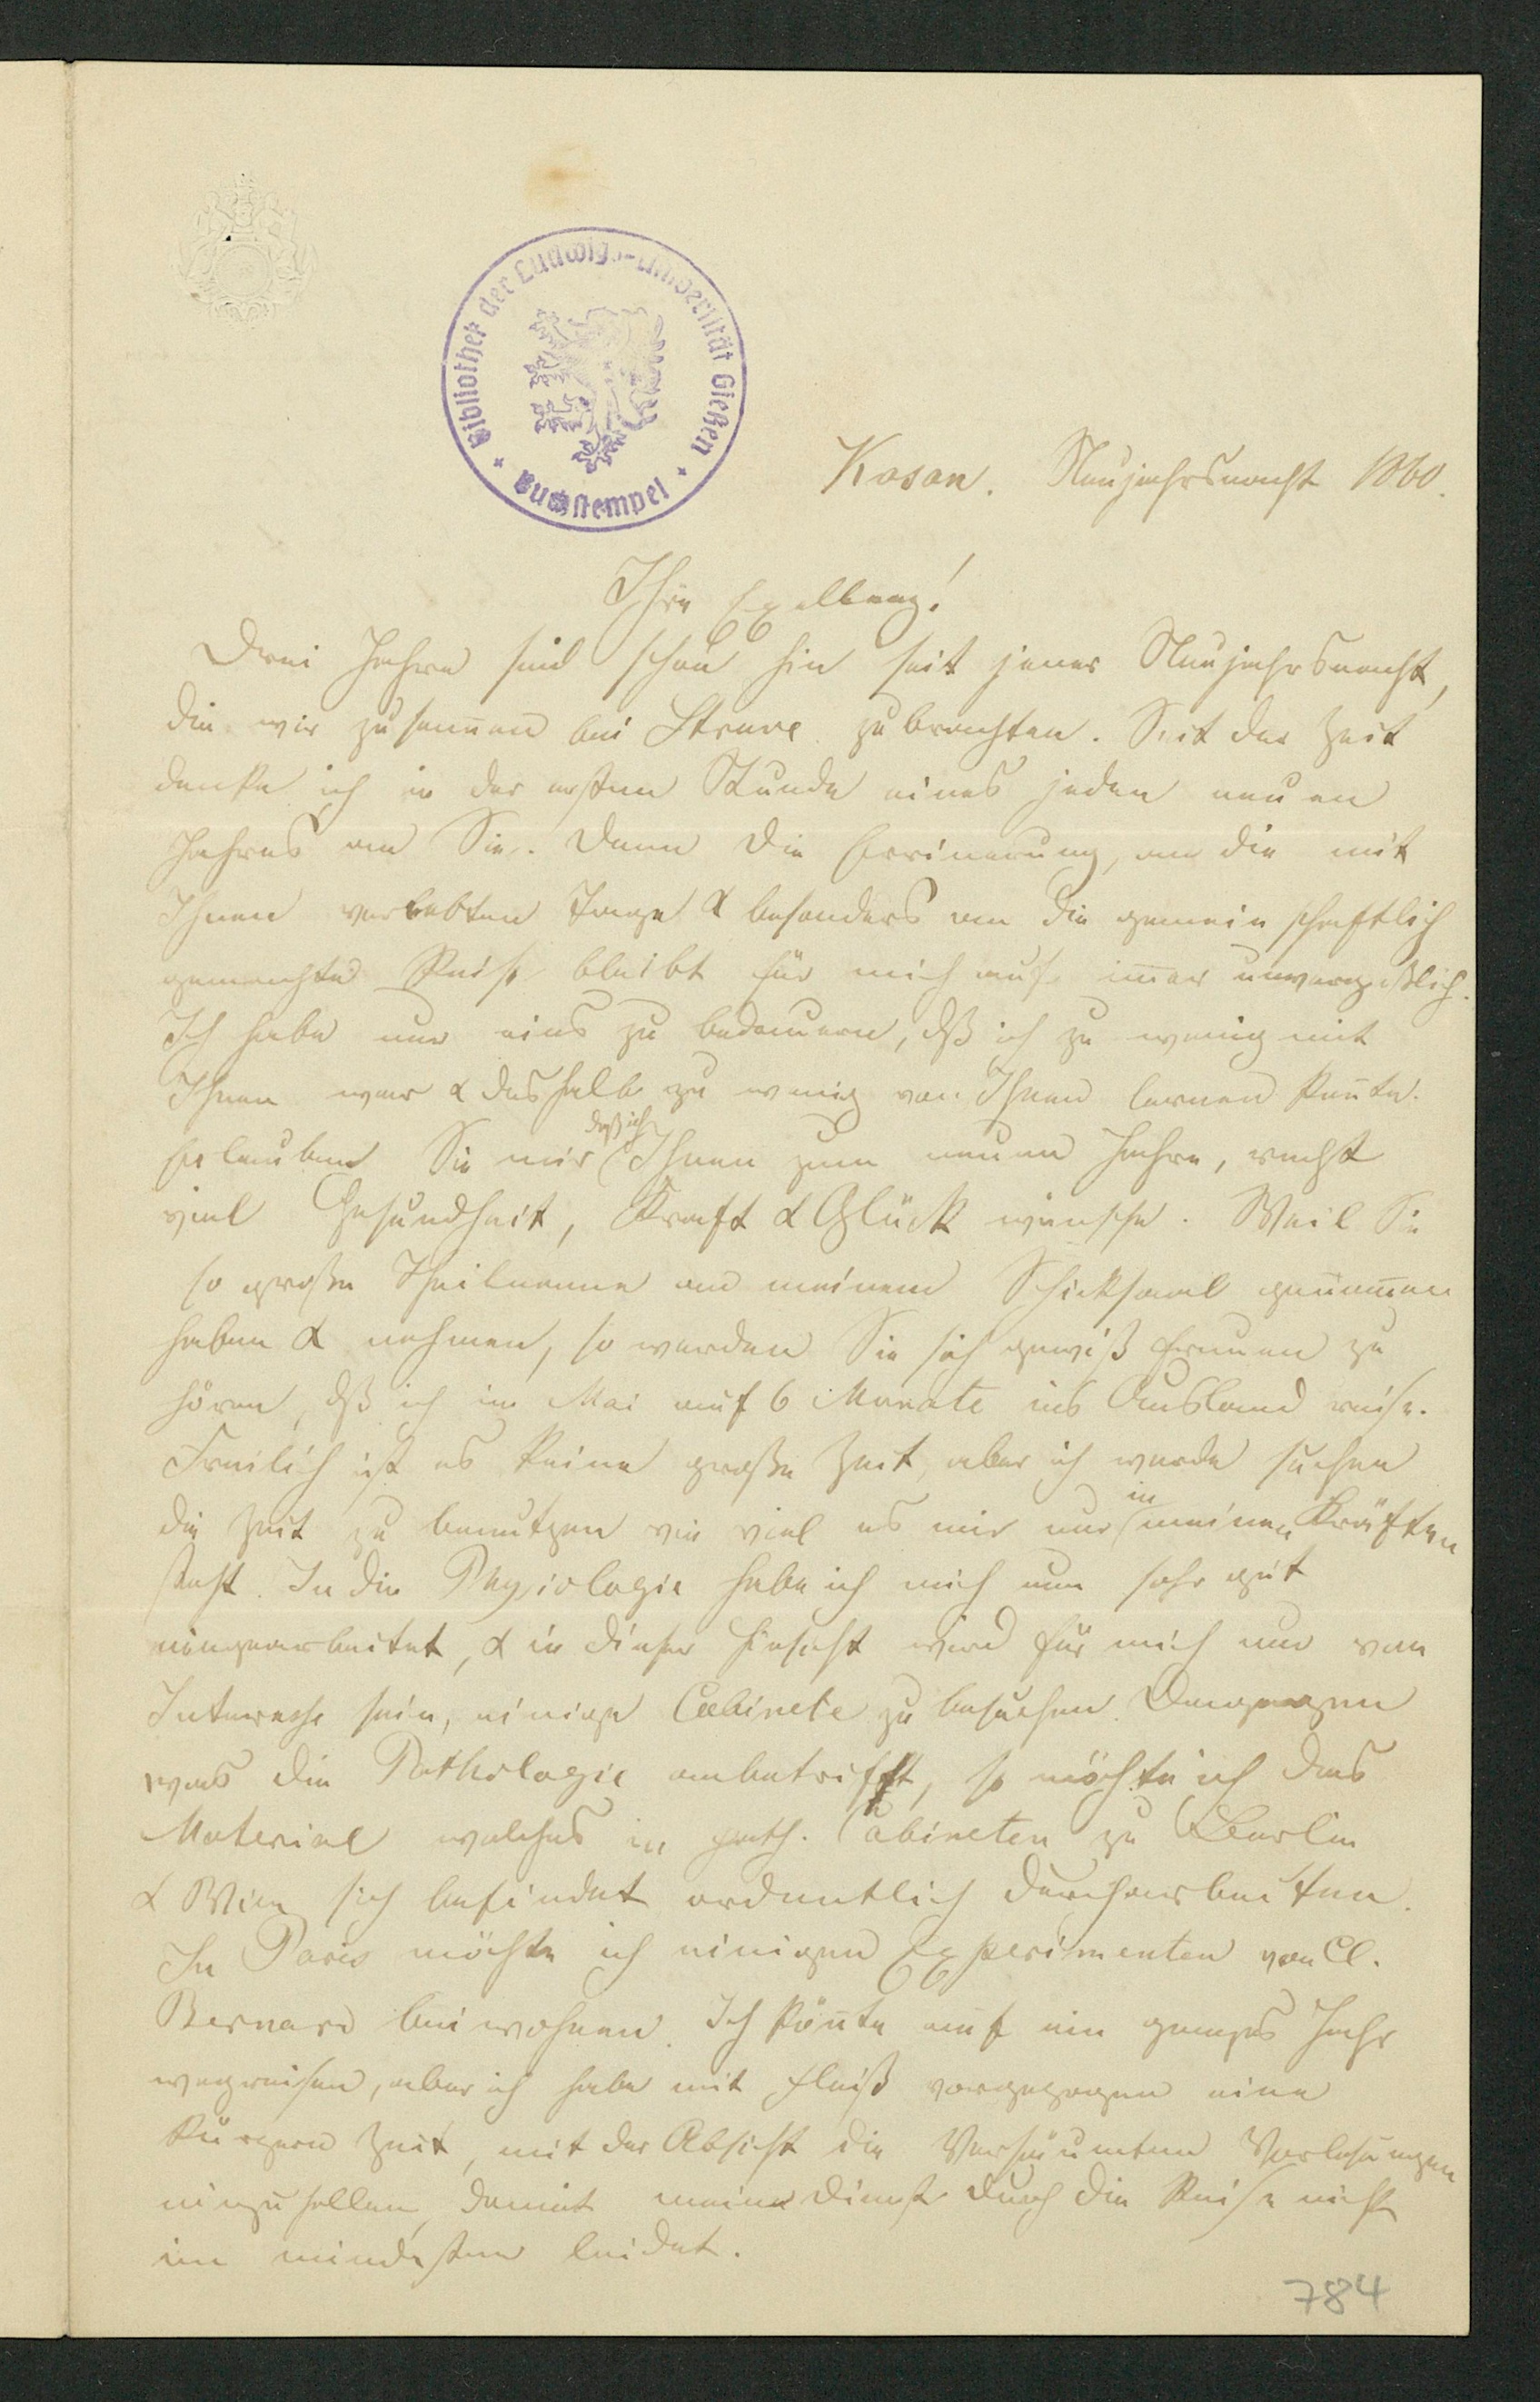 Bibliothek der Ludwigs-Universität Gießen
Buchstempel
Kasan. Neujahrsnacht 1860.
Ihre Exellenz!
Drei Jahre sind schon hin seit jener Neujahrsnacht,
die wir zusam̄en bei Struve zubrachten. Seit der Zeit
denke ich in der ersten Stunde eines jeden neuen
Jahres an Sie. Denn die Errinerung, an die mit
Ihnen verlebten Tage & besonders an die gemeinschaftlich
gemachte Reise bleibt für mich auf im̄er unvergeßlich.
Ich habe nur eins zu bedauern, dß ich zu wenig mit
Ihnen war & deshalb zu wenig von Ihnen lernen kon̄te.
Erlauben Sie mir daß ich Ihnen zum neuen Jahre, recht
viel Gesundheit, Kraft & Glück wünsche. Weil Sie
so große Theilname an meinem Schicksaal genom̄en
haben & nehmen, so werden Sie sich gewiß freuen zu
hören, dß ich im Mai auf 6 Monate ins Ausland reise.
Freilich ist es keine große Zeit, aber ich werde suchen
die Zeit zu benutzen wie viel es mir nur in meinen Kräften
steht. In die Physiologie habe ich mich nun sehr gut
eingearbeitet, & in dieser Hinsicht wird für mich nur von
Interesse sein, einige Cabinete zu besuchen. Dengegen
was die Pathologie anbetrifft, so möchte ich das
Material welches in path. Cabineten zu Berlin
& Wien sich befindet ordentlich durcharbeiten.
In Paris möchte ich einigen Experimenten von Cl.
Bernard beiwohnen. Ich kön̄te auf ein ganzes Jahr
wegreisen, aber ich habe mit Fleiß vorgezogen eine
kurzere Zeit, mit der Absicht die Versäumten Vorlesungen
einzuhollen, damit meine Dienst durch die Reise nicht
im mindesten leidet.
784